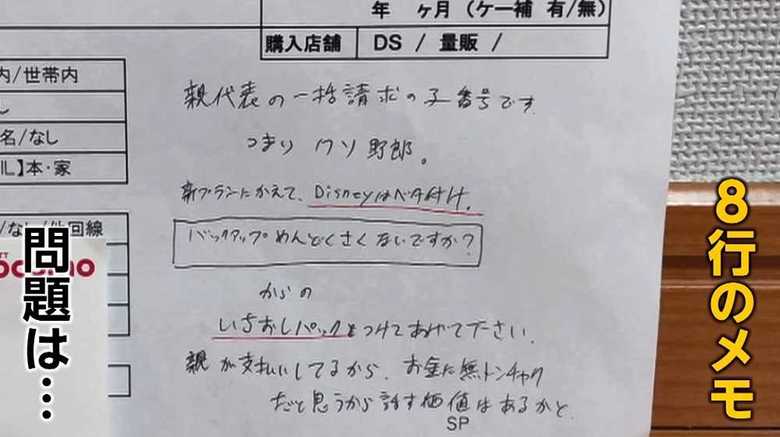 年 ヶ月(ケー補 有/無)
購入店舗 DS / 量販 /
内/世帯内
し
名/なし
IL】本・家
/なし/他回線
ocomo
親代表の一括請求の子番号です
つまり クソ野郎。
新プランにかえて、Disneyはベタ付け。
バックアップめんどくさくないですか?
からの
いちおしパックをつけてあげて下さい。
親が支払いしてるから、お金に無トンチャク
だと思うから話す価値はあるかと
SP
8行のメモ
問題は…